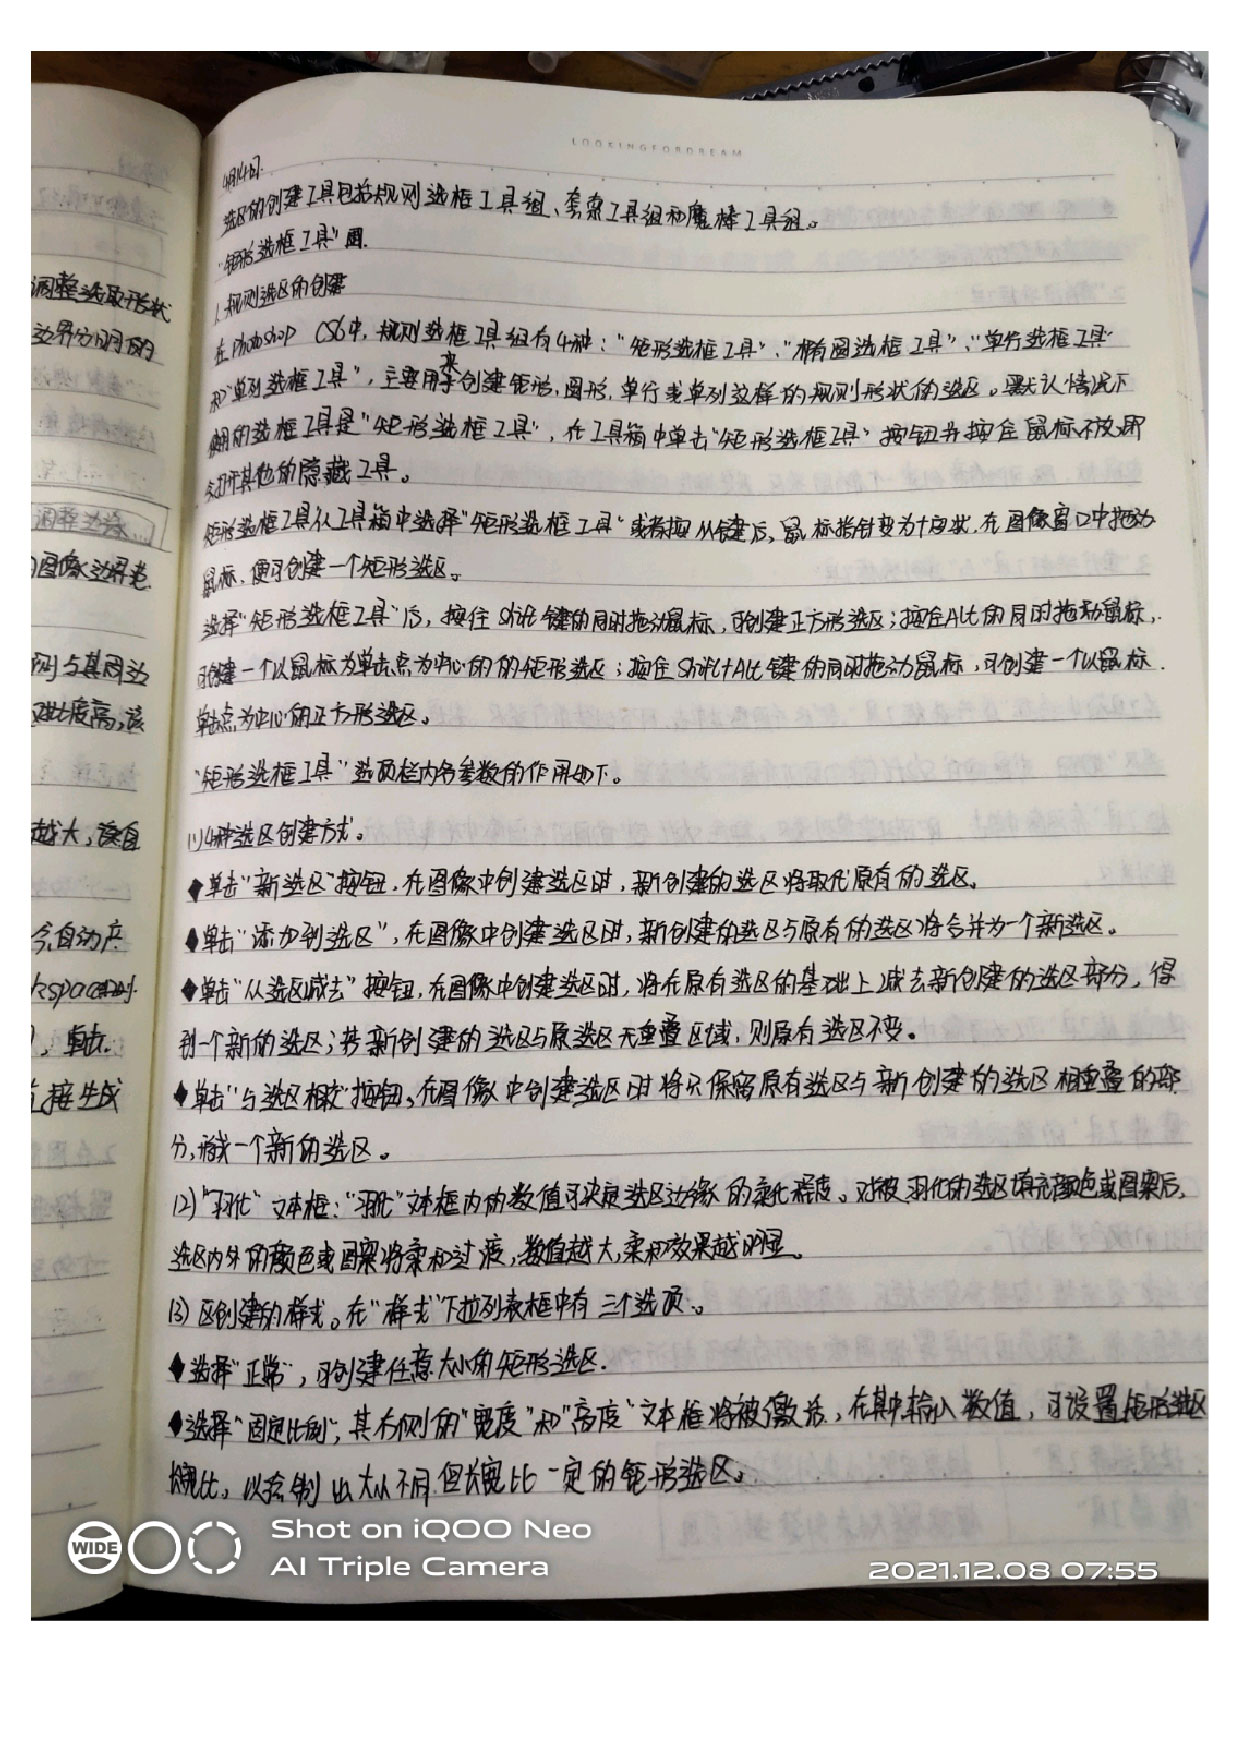 LOOKINGFORDREAM
4月14日.
选区的创建工具包括规则选框工具组、套索工具组和魔棒工具组。
"矩形选框工具"圆.
1.规则选区的创建
在photoshop CS6中,规则选框工具组有4种:"矩形选框工具"、"椭圆选框工具"、"单行选框工具"
和"单列选框工具",主要用来创建矩形、圆形、单行或单列这样的规则形状的选区。默认情况下
的选框工具是"矩形选框工具",在工具箱中单击"矩形选框工具"按钮并按住鼠标不放,即
会打开其他的隐藏工具。
矩形选框工具从工具箱中选择"矩形选框工具"或者按M键后,鼠标指针变为十字状.在图像窗口中拖动
鼠标,便可创建一个矩形选区。
选择"矩形选框工具"后,按住Shift键的同时拖动鼠标,可创建正方形选区;按住Alt的同时拖动鼠标,
可创建一个以鼠标为单击点为中心的的矩形选区;按住Shift+Alt键的同时拖动鼠标,可创建一个以鼠标
单击点为中心的正方形选区。
"矩形选框工具"选项栏内各参数的作用如下。
(1)4种选区创建方式。
◆单击"新选区"按钮,在图像中创建选区时,新创建的选区将取代原有的选区。
◆单击"添加到选区",在图像中创建选区时,新创建的选区与原有的选区将合并为一个新选区。
◆单击"从选区减去"按钮,在图像中创建选区时,将在原有选区的基础上减去新创建的选区部分,得
到一个新的选区;若新创建的选区与原选区无重叠区域,则原有选区不变。
◆单击"与选区相交"按钮,在图像中创建选区时将只保留原有选区与新创建的选区相重叠的部
分,形成一个新的选区。
(2)"羽化"文本框:"羽化"文本框内的数值可决定选区边缘的柔化程度。对被羽化的选区填充颜色或图案后,
选区内外的颜色或图案将柔和过渡,数值越大,柔和效果越明显。
(3)区创建的样式。在"样式"下拉列表框中有三个选项。
◆选择"正常",可创建任意大小的矩形选区.
◆选择"固定比例",其右侧的"宽度"和"高度"文本框将被激活,在其中输入数值,可设置矩形选区
长宽比,以绘制出大小不同但长宽比一定的矩形选区。
调整选取形状
边界分明的
调整边缘
图像边界
与其周边
对比度高,该
越大,该自
会自动产
space时
,单击
接生成
WIDE
Shot on iQOO Neo
AI Triple Camera
2021.12.08 07:55